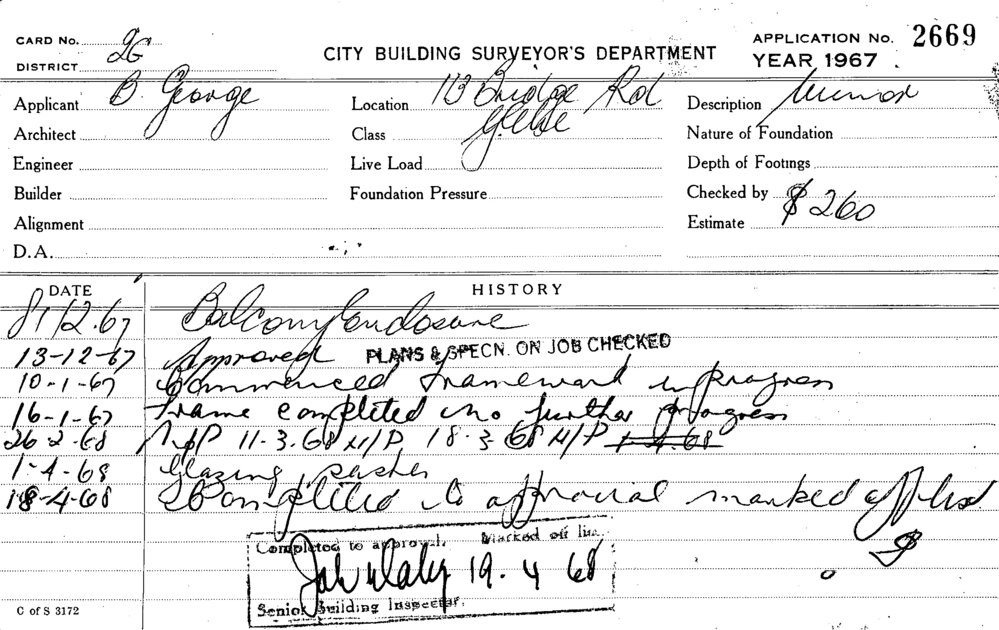 CARD No. 26
DISTRICT
CITY BUILDING SURVEYOR'S DEPARTMENT
APPLICATION No. 2669
YEAR 1967
Applicant B. George
Location 113 Bridge Rd
Glebe
Description Minor
Architect
Class
Nature of Foundation
Engineer
Live Load
Depth of Footings
Builder
Foundation Pressure
Checked by
Alignment
Estimate $ 260
D.A.
DATE HISTORY
8/12.67 Balcony Enclosure
13-12-67 Approved PLANS & SPECN. ON JOB CHECKED
10-1-67 Commenced framework in progress
16-1-67 Frame completed no further progress
26 2-68 N/P 11-3.68 N/P 18-3 68 N/P 1-4-68
1-4-68 Glazing sashes
18-4-68 Completed to approval marked off list
Completed to approval. Marked off list.
19.4 68
Senior Building Inspector.
C of S 3172